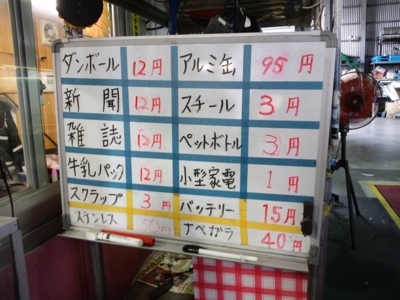 ダンボール 12円 アルミ缶 95円
新聞 12円 スチール 3円
雑誌 12円 ペットボトル 3円
牛乳パック 12円 小型家電 1円
スクラップ 3円 バッテリー 15円
ステンレス 円 ナベガラ 40円